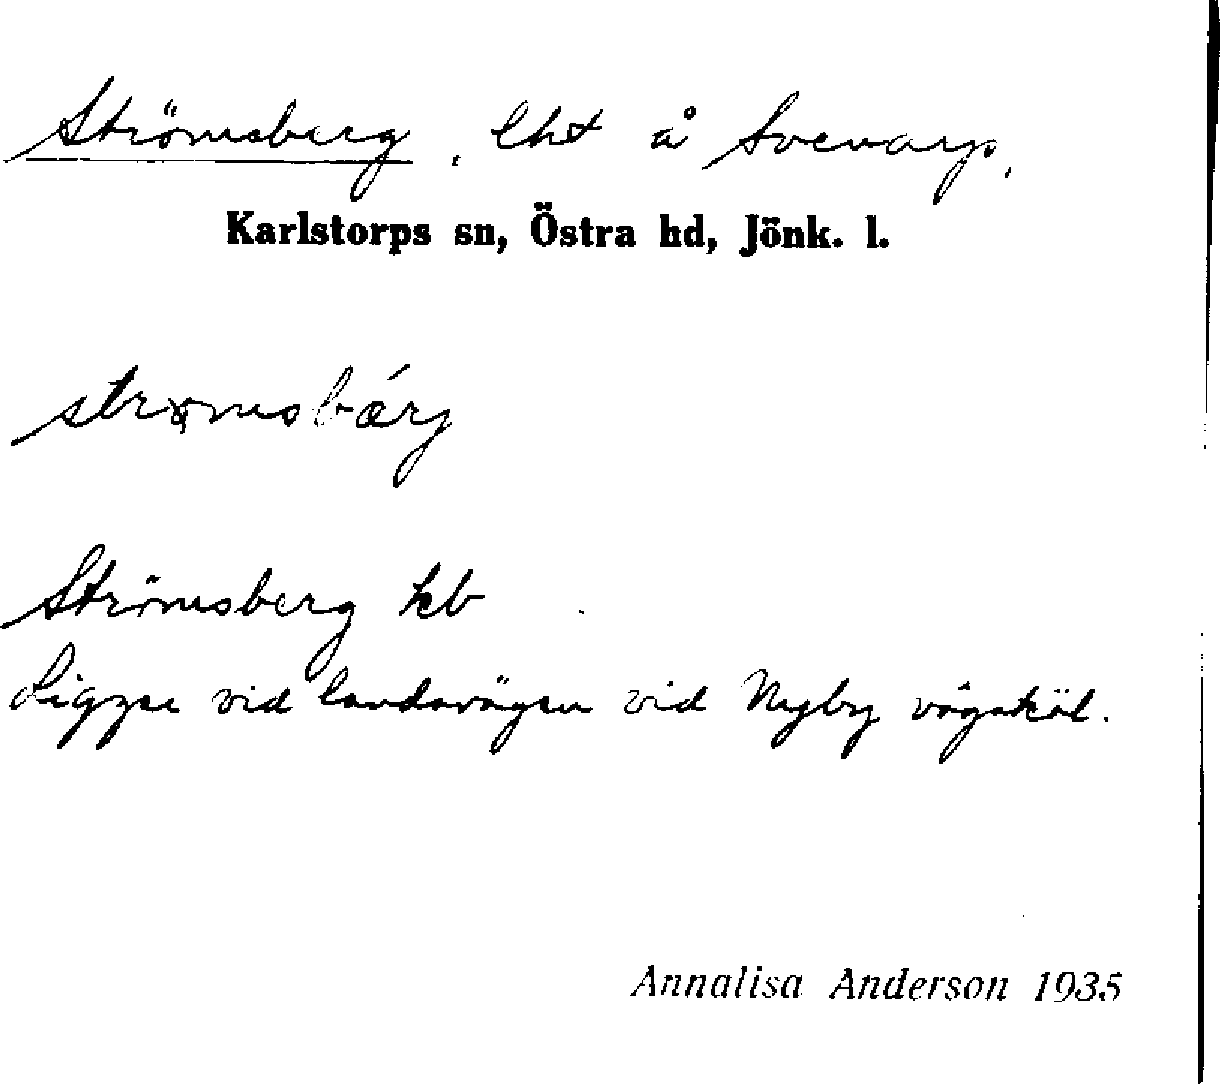 Strömsberg, lht å Svenarp,
Karlstorps sn, Östra hd, Jönk. l.
Strömsberg kb
Ligger vid landsvägen vid Nyby vägskäl.
Annalisa Anderson 1935